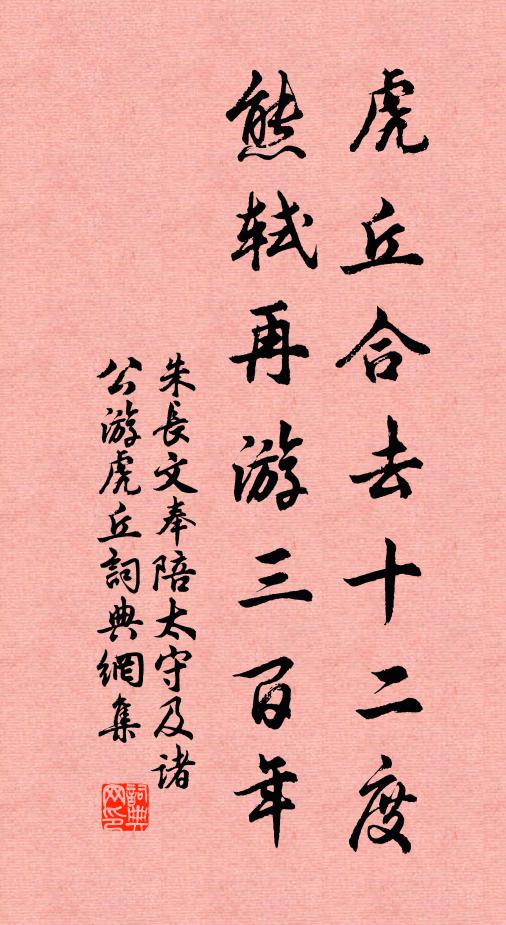 虎丘合去十二度
熊轼再游三百年
朱長文奉陪太守及諸
公游虎丘詞典網集
詞典网印